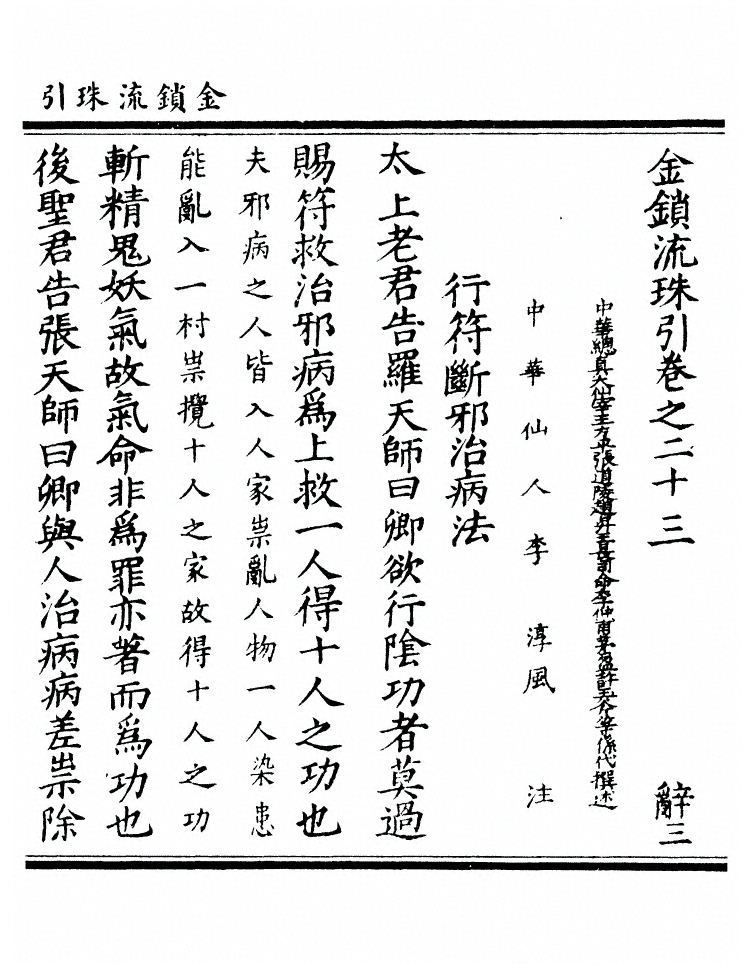 金鎖流珠引
金鎖流珠引卷之二十三 辭三
中華總真大仙宰王方平張道陵趙昇王長司命李仲甫茅盈許玉斧等係代撰述
中華仙人李淳風注
行符斷邪治病法
太上老君告羅天師曰卿欲行陰功者莫過
賜符救治邪病爲上救一人得十人之功也
夫邪病之人皆入人家祟亂人物一人染患
能亂入一村祟攪十人之家故得十人之功
斬精鬼妖氣故氣命非爲罪亦著而爲功也
後聖君告張天師曰卿與人治病病差祟除